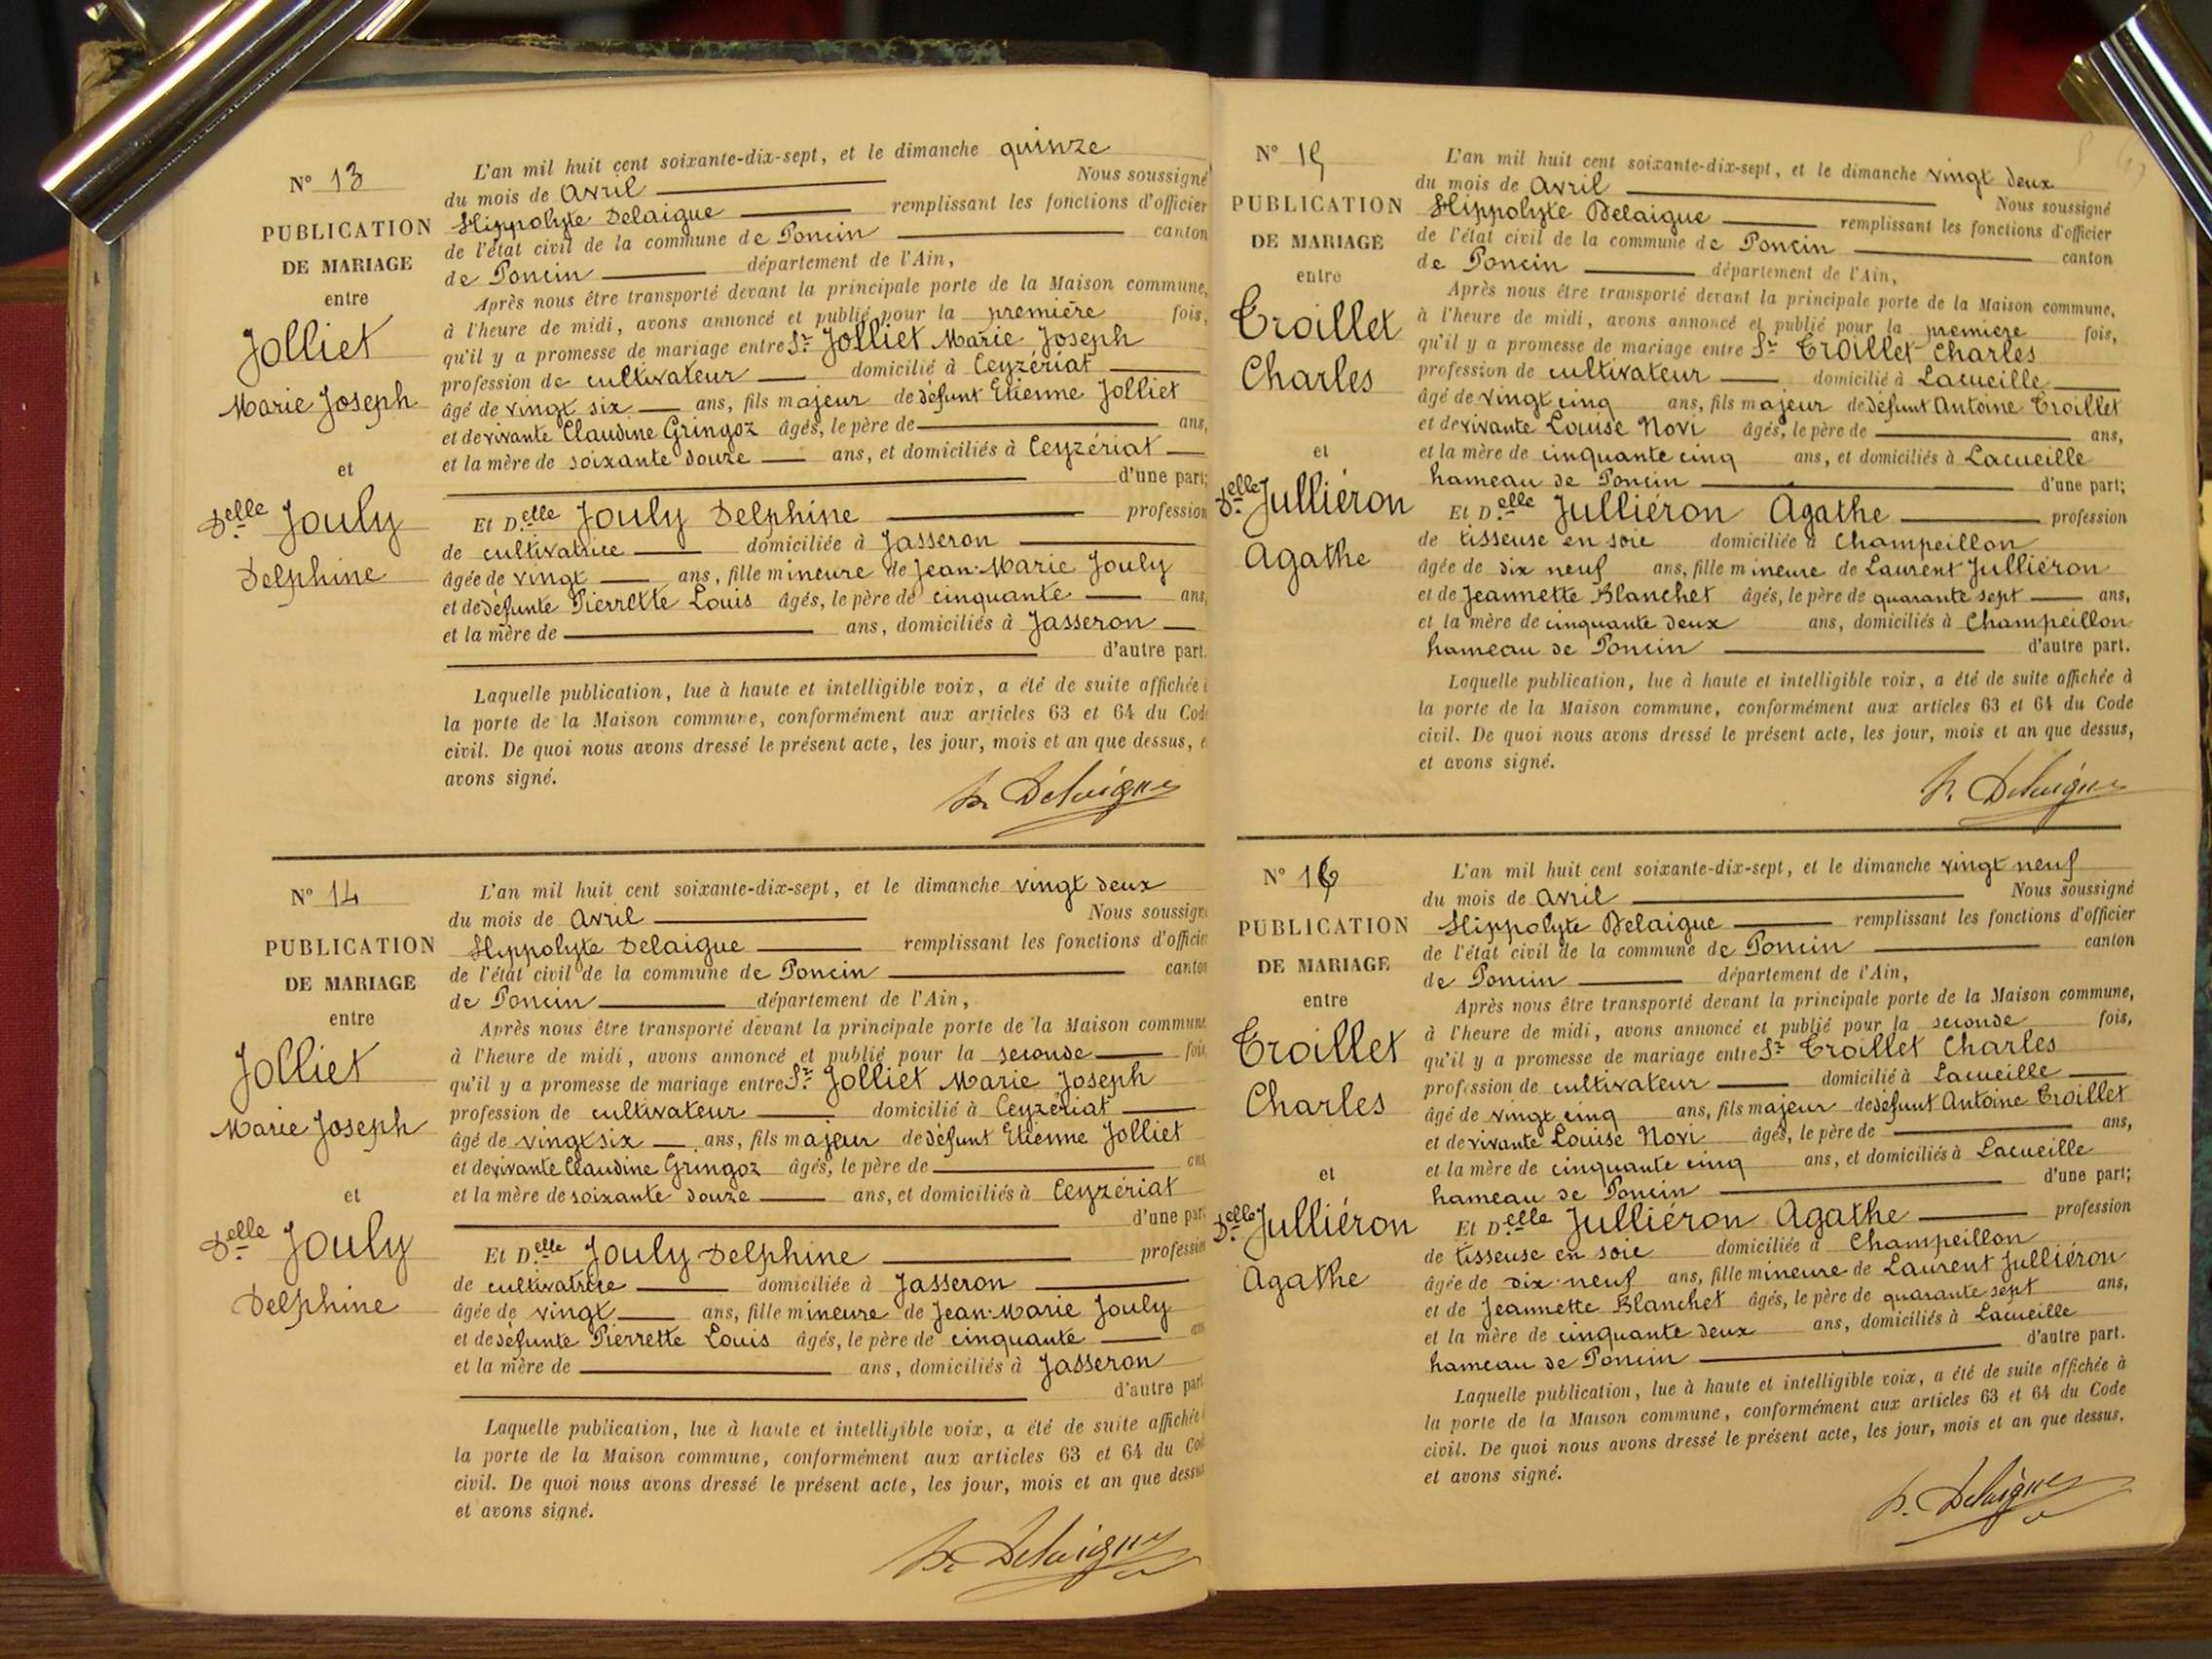 N° 13
PUBLICATION
DE MARIAGE
entre
Jolliet
Marie Joseph
et
Delle Jouly
Delphine
L'an mil huit cent soixante-dix-sept, et le dimanche quinze
du mois de Avril Nous soussigné
Hippolyte Delaigue remplissant les fonctions d'officier
de l'état civil de la commune de Poncin canton
de Poncin département de l'Ain,
Après nous être transporté devant la principale porte de la Maison commune,
à l'heure de midi, avons annoncé et publié pour la première fois,
qu'il y a promesse de mariage entre Sr Jolliet Marie Joseph
profession de cultivateur domicilié à Ceyzériat
âgé de vingt six ans, fils majeur de défunt Etienne Jolliet
et de vivante Claudine Gringoz âgés, le père de ans,
et la mère de soixante douze ans, et domiciliés à Ceyzériat
d'une part;
Et Delle Jouly Delphine profession
de cultivatrice domiciliée à Jasseron
âgée de vingt ans, fille mineure de Jean-Marie Jouly
et de défunte Pierrette Louis âgés, le père de cinquante ans,
et la mère de ans, domiciliés à Jasseron
d'autre part.
Laquelle publication, lue à haute et intelligible voix, a été de suite affichée
la porte de la Maison commune, conformément aux articles 63 et 64 du Code
civil. De quoi nous avons dressé le présent acte, les jour, mois et an que dessus, e
avons signé.
h. Delaigue
N° 14
PUBLICATION
DE MARIAGE
entre
Jolliet
Marie Joseph
et
Delle Jouly
Delphine
L'an mil huit cent soixante-dix-sept, et le dimanche vingt deux
du mois de Avril Nous soussign
Hippolyte Delaigue remplissant les fonctions d'officie
de l'état civil de la commune de Poncin canto
de Poncin département de l'Ain,
Après nous être transporté devant la principale porte de la Maison commune
à l'heure de midi, avons annoncé et publié pour la seconde fois
qu'il y a promesse de mariage entre Sr Jolliet Marie Joseph
profession de cultivateur domicilié à Ceyzériat
âgé de vingt six ans, fils majeur de défunt Etienne Jolliet
et de vivante Claudine Gringoz âgés, le père de ans
et la mère de soixante douze ans, et domiciliés à Ceyzériat
d'une part
Et Delle Jouly Delphine profession
de cultivatrice domiciliée à Jasseron
âgée de vingt ans, fille mineure de Jean-Marie Jouly
et de défunte Pierrette Louis âgés, le père de cinquante ans
et la mère de ans, domiciliés à Jasseron
d'autre part
Laquelle publication, lue à haute et intelligible voix, a été de suite affichée
la porte de la Maison commune, conformément aux articles 63 et 64 du Cod
civil. De quoi nous avons dressé le présent acte, les jour, mois et an que dessus
et avons signé.
h. Delaigue
N° 15
PUBLICATION
DE MARIAGE
entre
Troillet
Charles
et
Delle Julliéron
Agathe
L'an mil huit cent soixante-dix-sept, et le dimanche vingt deux
du mois de Avril Nous soussigné
Hippolyte Delaigue remplissant les fonctions d'officier
de l'état civil de la commune de Poncin canton
de Poncin département de l'Ain,
Après nous être transporté devant la principale porte de la Maison commune,
à l'heure de midi, avons annoncé et publié pour la première fois,
qu'il y a promesse de mariage entre Sr Troillet Charles
profession de cultivateur domicilié à Lacueille
âgé de vingt cinq ans, fils majeur de défunt Antoine Troillet
et de vivante Louise Novi âgés, le père de ans,
et la mère de cinquante cinq ans, et domiciliés à Lacueille
hameau de Poncin d'une part;
Et Delle Julliéron Agathe profession
de tisseuse en soie domiciliée à Champeillon
âgée de dix neuf ans, fille mineure de Laurent Julliéron
et de Jeannette Blanchet âgés, le père de quarante sept ans,
et la mère de cinquante deux ans, domiciliés à Champeillon
hameau de Poncin d'autre part.
Laquelle publication, lue à haute et intelligible voix, a été de suite affichée à
la porte de la Maison commune, conformément aux articles 63 et 64 du Code
civil. De quoi nous avons dressé le présent acte, les jour, mois et an que dessus,
et avons signé.
h. Delaigue
N° 16
PUBLICATION
DE MARIAGE
entre
Troillet
Charles
et
Delle Julliéron
Agathe
L'an mil huit cent soixante-dix-sept, et le dimanche vingt neuf
du mois de Avril Nous soussigné
Hippolyte Delaigue remplissant les fonctions d'officier
de l'état civil de la commune de Poncin canton
de Poncin département de l'Ain,
Après nous être transporté devant la principale porte de la Maison commune,
à l'heure de midi, avons annoncé et publié pour la seconde fois,
qu'il y a promesse de mariage entre Sr Troillet Charles
profession de cultivateur domicilié à Lacueille
âgé de vingt cinq ans, fils majeur de défunt Antoine Troillet
et de vivante Louise Novi âgés, le père de ans,
et la mère de cinquante cinq ans, et domiciliés à Lacueille
hameau de Poncin d'une part;
Et Delle Julliéron Agathe profession
de tisseuse en soie domiciliée à Champeillon
âgée de dix-neuf ans, fille mineure de Laurent Julliéron
et de Jeannette Blanchet âgés, le père de quarante sept ans,
et la mère de cinquante deux ans, domiciliés à Lacueille
hameau de Poncin d'autre part.
Laquelle publication, lue à haute et intelligible voix, a été de suite affichée à
la porte de la Maison commune, conformément aux articles 63 et 64 du Code
civil. De quoi nous avons dressé le présent acte, les jour, mois et an que dessus,
et avons signé.
h. Delaigue